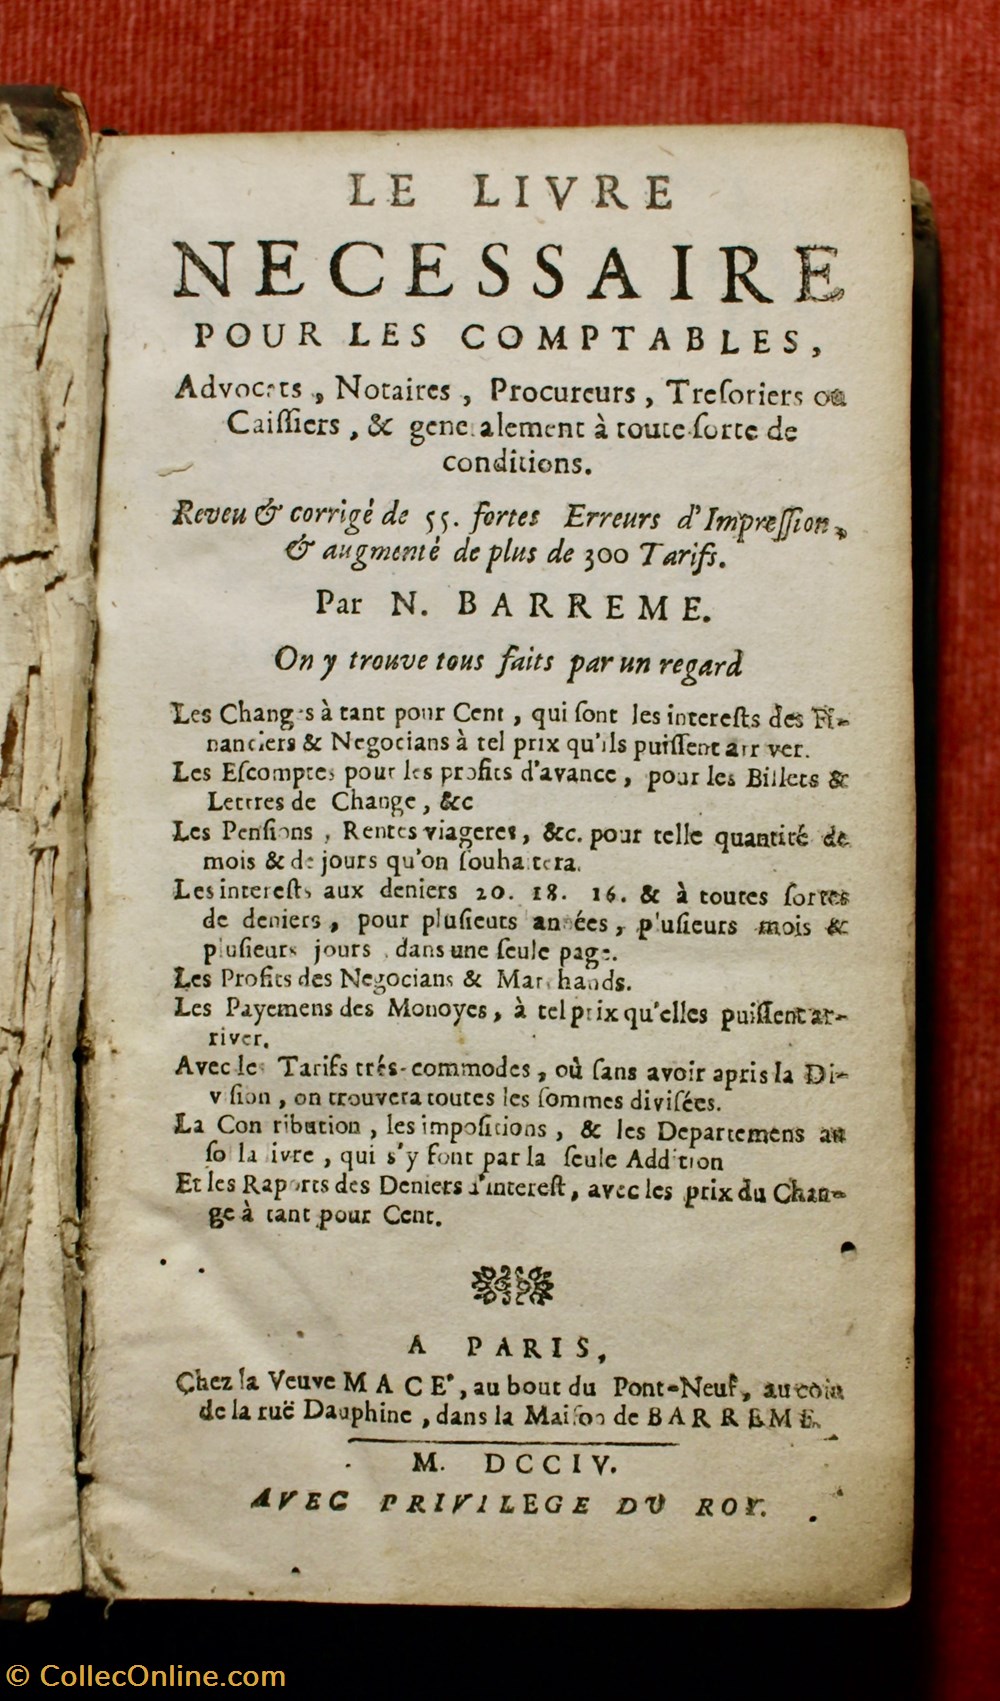 LE LIVRE
NECESSAIRE
POUR LES COMPTABLES,
Advocats, Notaires, Procureurs, Treſoriers ou
Caiſſiers, & generalement à toute ſorte de
conditions.
Reveu & corrigé de 55. fortes Erreurs d'Impreſſion,
& augmenté de plus de 300 Tarifs.
Par N. BARREME.
On y trouve tous faits par un regard
Les Changes à tant pour Cent, qui ſont les intereſts des Fi-
nanciers & Negocians à tel prix qu'ils puiſſent arriver.
Les Eſcomptes pour les profits d'avance, pour les Billets &
Lettres de Change, &c
Les Penſions, Rentes viageres, &c. pour telle quantité de
mois & de jours qu'on ſouhaitera.
Les intereſts aux deniers 20. 18. 16. & à toutes ſortes
de deniers, pour pluſieurs années, pluſieurs mois &
pluſieurs jours, dans une ſeule page.
Les Profits des Negocians & Marchands.
Les Payemens des Monoyes, à tel prix qu'elles puiſſent ar-
river.
Avec les Tarifs trés-commodes, où ſans avoir apris la Di-
viſion, on trouvera toutes les ſommes diviſées.
La Contribution, les impoſitions, & les Departemens au
ſol la livre, qui s'y font par la ſeule Addition
Et les Raports des Deniers d'intereſt, avec les prix du Chan-
ge à tant pour Cent.
A PARIS,
Chez la Veuve MACE', au bout du Pont-Neuf, au coin
de la ruë Dauphine, dans la Maiſon de BARREME.
M. DCCIV.
AVEC PRIVILEGE DU ROY.
© CollecOnline.com